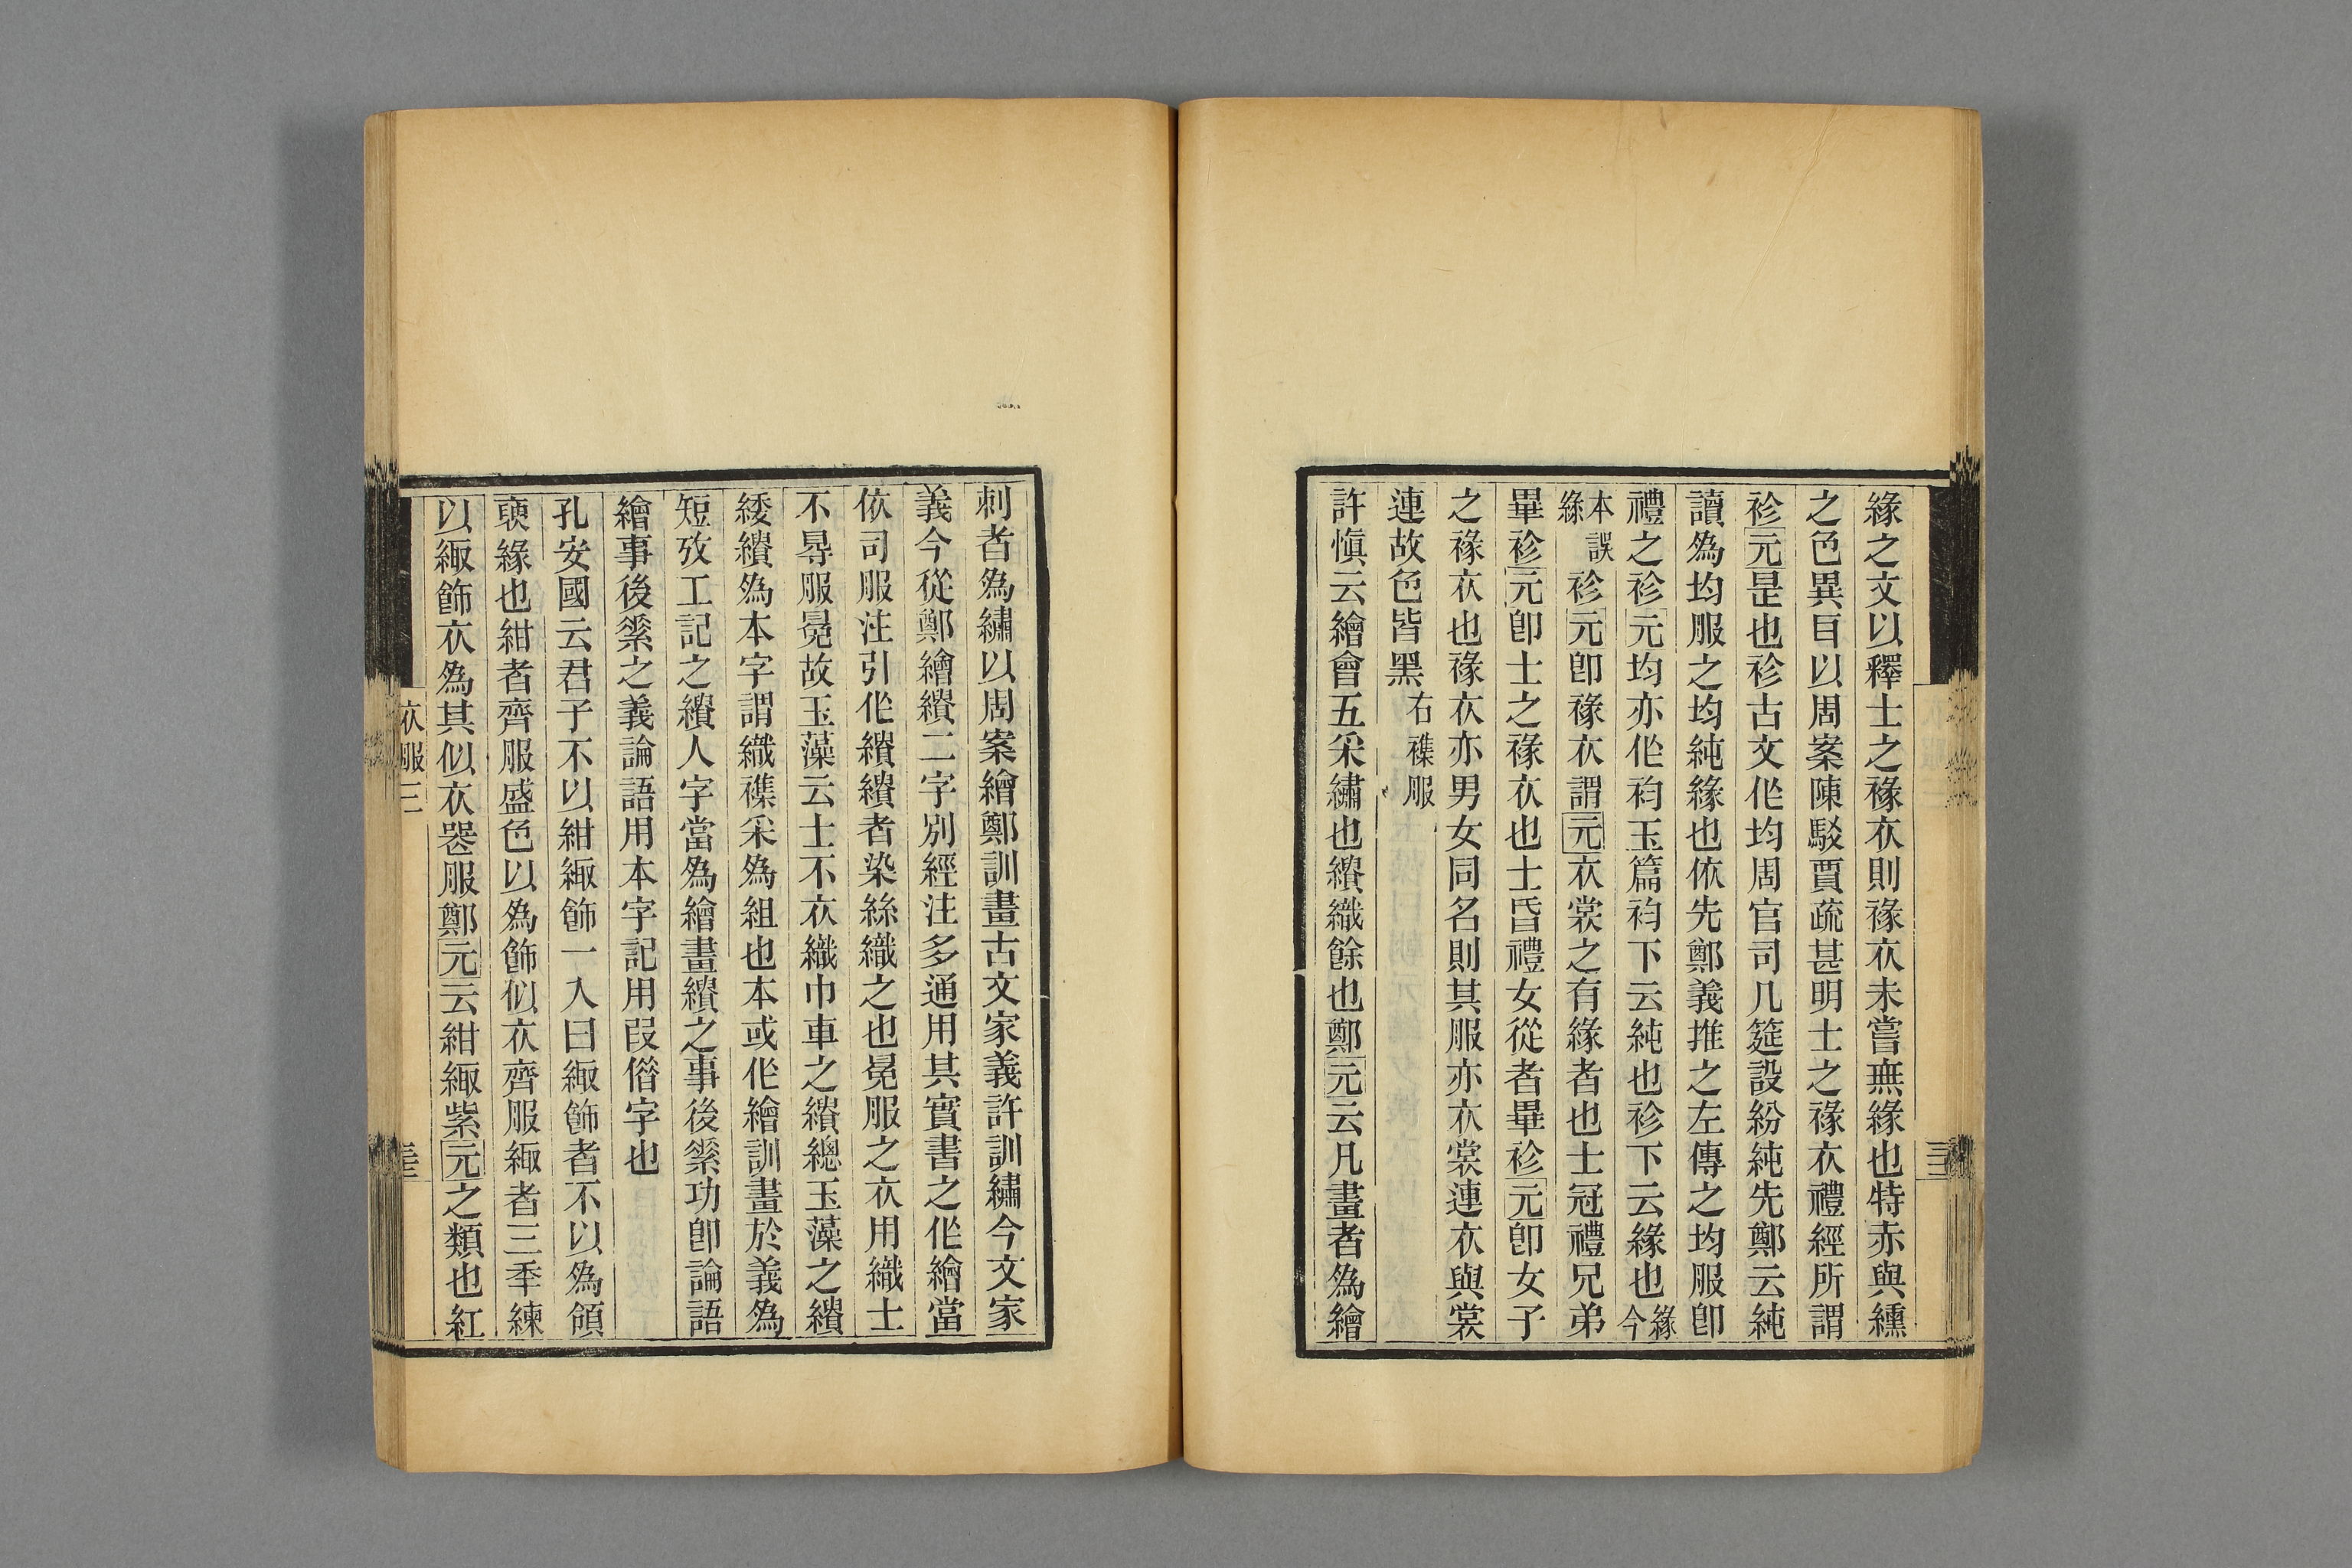 緣之文以釋士之褖衣則褖衣未嘗無緣也特赤與纁
之色異𦣞以周案陳駁賈疏甚明士之褖衣禮經所謂
袗元是也袗古文作均周官司几筵設紛純先鄭云純
讀為均服之均純緣也依先鄭義推之左傳之均服卽
禮之袗元均亦作袀玉篇袀下云純也袗下云緣也緣今
本誤緣袗元卽褖衣謂元衣裳之有緣者也士冠禮兄弟
畢袗元卽士之褖衣也士昏禮女從者畢袗元卽女子
之褖衣也褖衣亦男女同名則其服亦衣裳連衣與裳
連故色皆黑右襍服
許愼云繪會五采繡也繢織餘也鄭元云凡畫者為繪
刺者為繡以周案繪鄭訓畫古文家義許訓繡今文家
義今從鄭繪繢二字別經注多通用其實書之作繪當
依司服注引作繢繢者染絲織之也冕服之衣用織士
不㝵服冕故玉藻云士不衣織巾車之繢總玉藻之繢
緌繢為本字謂織襍采為組也本或作繪訓畫於義為
短攷工記之繢人字當為繪畫繢之事後縤功卽論語
繪事後縤之義論語用本字記用叚借字也
孔安國云君子不以紺緅飾一入曰緅飾者不以為領
褎緣也紺者齊服盛色以為飾似衣齊服緅者三年練
以緅飾衣為其似衣喪服鄭元云紺緅紫元之類也紅
衣服三